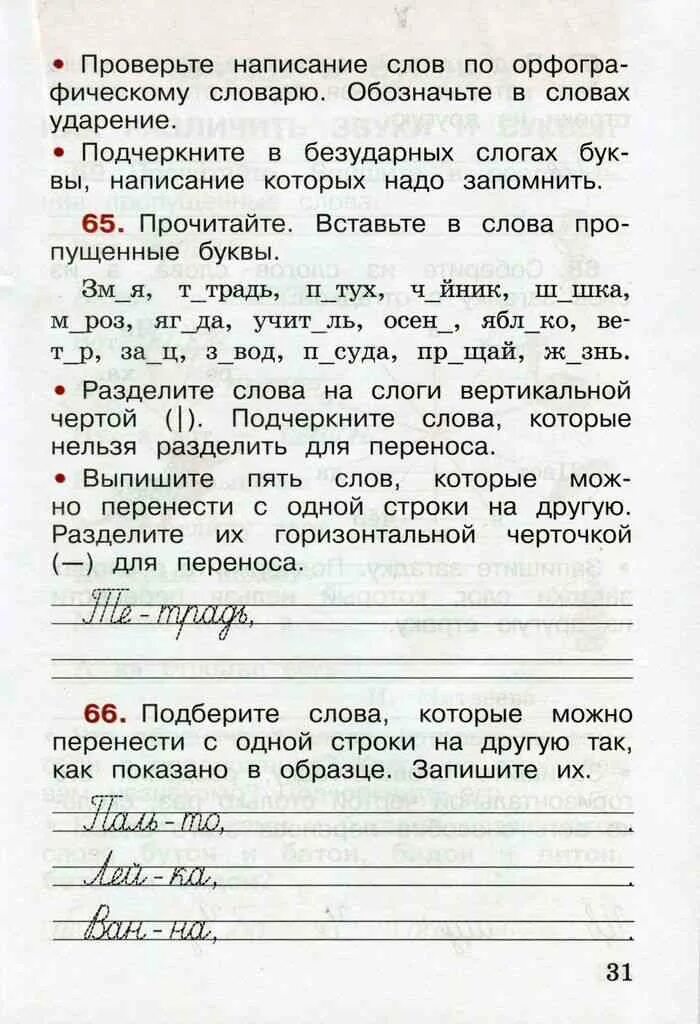 • Проверьте написание слов по орфогра-
фическому словарю. Обозначьте в словах
ударение.
• Подчеркните в безударных слогах бук-
вы, написание которых надо запомнить.
65. Прочитайте. Вставьте в слова про-
пущенные буквы.
Зм_я, т_традь, п_тух, ч_йник, ш_шка,
м_роз, яг_да, учит_ль, осен_, ябл_ко, ве-
т_р, за_ц, з_вод, п_суда, пр_щай, ж_знь.
• Разделите слова на слоги вертикальной
чертой (|). Подчеркните слова, которые
нельзя разделить для переноса.
• Выпишите пять слов, которые мож-
но перенести с одной строки на другую.
Разделите их горизонтальной черточкой
(—) для переноса.
Те-традь,
66. Подберите слова, которые можно
перенести с одной строки на другую так,
как показано в образце. Запишите их.
Паль-то,
Лей-ка,
Ван-на,
31